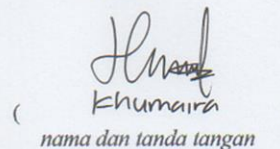 ( Khumaira
nama dan tanda tangan